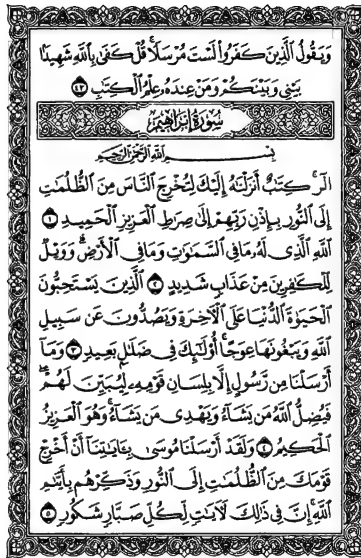 وَيَقُولُ ٱلَّذِينَ كَفَرُوا۟ لَسْتَ مُرْسَلًا ۚ قُلْ كَفَىٰ بِٱللَّهِ شَهِيدًۢا
بَيْنِى وَبَيْنَكُمْ وَمَنْ عِندَهُۥ عِلْمُ ٱلْكِتَٰبِ ٤٣
سورة ابراهيم
بِسْمِ ٱللَّهِ ٱلرَّحْمَٰنِ ٱلرَّحِيمِ
الٓر ۚ كِتَٰبٌ أَنزَلْنَٰهُ إِلَيْكَ لِتُخْرِجَ ٱلنَّاسَ مِنَ ٱلظُّلُمَٰتِ
إِلَى ٱلنُّورِ بِإِذْنِ رَبِّهِمْ إِلَىٰ صِرَٰطِ ٱلْعَزِيزِ ٱلْحَمِيدِ ١
ٱللَّهِ ٱلَّذِى لَهُۥ مَا فِى ٱلسَّمَٰوَٰتِ وَمَا فِى ٱلْأَرْضِ ۗ وَوَيْلٌ
لِّلْكَٰفِرِينَ مِنْ عَذَابٍ شَدِيدٍ ٢ ٱلَّذِينَ يَسْتَحِبُّونَ
ٱلْحَيَوٰةَ ٱلدُّنْيَا عَلَى ٱلْءَاخِرَةِ وَيَصُدُّونَ عَن سَبِيلِ
ٱللَّهِ وَيَبْغُونَهَا عِوَجًا ۚ أُو۟لَٰٓئِكَ فِى ضَلَٰلٍۭ بَعِيدٍ ٣ وَمَآ
أَرْسَلْنَا مِن رَّسُولٍ إِلَّا بِلِسَانِ قَوْمِهِۦ لِيُبَيِّنَ لَهُمْ ۖ
فَيُضِلُّ ٱللَّهُ مَن يَشَآءُ وَيَهْدِى مَن يَشَآءُ ۚ وَهُوَ ٱلْعَزِيزُ
ٱلْحَكِيمُ ٤ وَلَقَدْ أَرْسَلْنَا مُوسَىٰ بِـَٔايَٰتِنَآ أَنْ أَخْرِجْ
قَوْمَكَ مِنَ ٱلظُّلُمَٰتِ إِلَى ٱلنُّورِ وَذَكِّرْهُم بِأَيَّىٰمِ
ٱللَّهِ ۚ إِنَّ فِى ذَٰلِكَ لَءَايَٰتٍ لِّكُلِّ صَبَّارٍ شَكُورٍ ٥